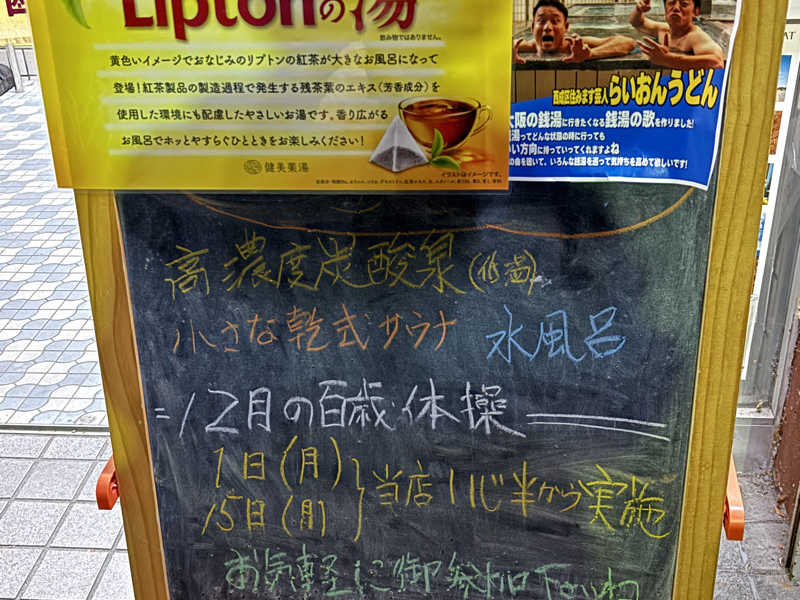 Liptonの湯
飲み物ではありません。
黄色いイメージでおなじみのリプトンの紅茶が大きなお風呂になって
登場！紅茶製品の製造過程で発生する残茶葉のエキス（芳香成分）を
使用した環境にも配慮したやさしいお湯です。香り広がる
お風呂でホッとやすらぐひとときをお楽しみください！
健美薬湯
イラストはイメージです。
西成区住みます芸人 らいおんうどん
大阪の銭湯に行きたくなる銭湯の歌を作りました！
銭湯ってどんな状態の時に行っても
いい方向に持っていってくれますよね
の曲を聴いて、いろんな銭湯を巡って気持ちを高めて欲しいです！
高濃度炭酸泉(低温)
小さな乾式サウナ 水風呂
=12月の百歳体操
1日(月)
15日(月) 当店11じ半から実施
お気軽に御参加下さいね